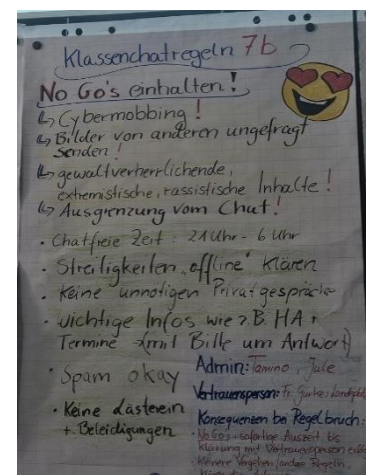 Klassenchatregeln 7b
No Go's einhalten!
↳ Cybermobbing !
↳ Bilder von anderen ungefragt
senden !
↳ gewaltverherrlichende,
extremistische, rassistische Inhalte !
↳ Ausgrenzung vom Chat !
• Chatfreie Zeit : 21 Uhr - 6 Uhr
• Streitigkeiten „offline" klären
• Keine unnötigen Privatgespräche
• wichtige Infos wie z.B. HA +
Termine (mit Bitte um Antwort)
• Spam okay
• Keine Lästerein
+ Beleidigungen
Admin: Tamino, Jule
Vertrauensperson: Fr.
Konsequenzen bei Regelbruch:
No Go's = sofortige Auszeit, bis
Klärung mit Vertrauensperson